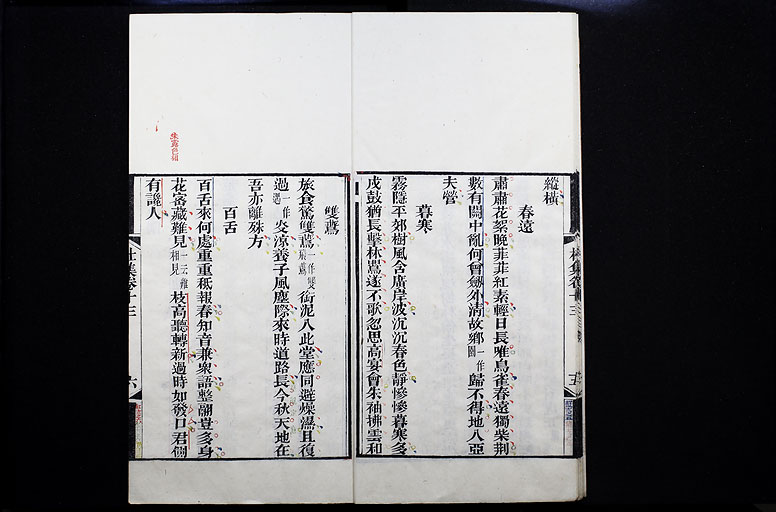 縱橫
春遠
肅肅花絮晚菲菲紅素輕日長唯鳥雀春遠獨柴荊
數有關中亂何曾劒外清故鄉一作園歸不得地入亞
夫營
暮寒
霧隱平郊樹風含廣岸波沉沉春色靜慘慘暮寒多
戍鼓猶長擊林鸎遂不歌忽思高宴會朱袖拂雲和
杜集卷十三
五
雙鷰
旅食驚雙鷰一作雙飛鷰銜泥入此堂應同避燥濕且復
過一作遇炎涼養子風塵際來時道路長今秋天地在
吾亦離殊方
百舌
百舌來何處重重秪報春知音兼衆語整翮豈多身
花密藏難見一云難相見枝高聽轉新過時如發口君側
有讒人
杜集卷十三
六